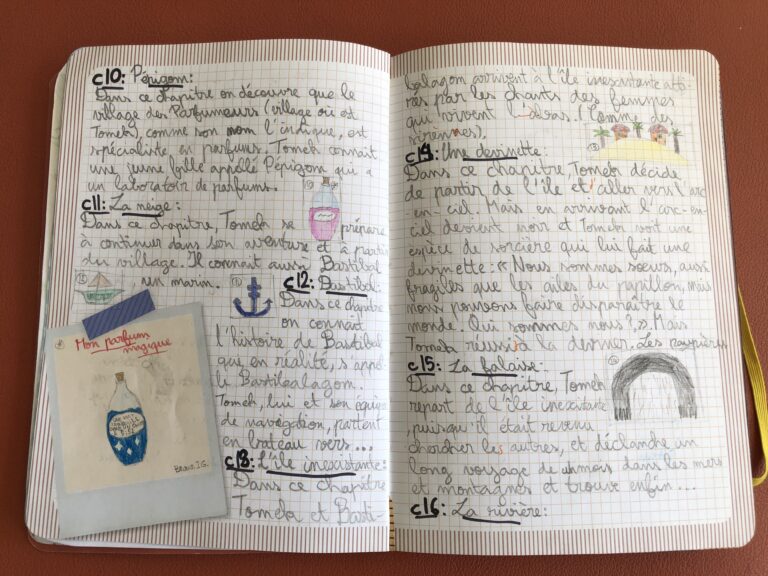 c10: Pépigom:
Dans ce chapitre on découvre que le
village des Parfumeurs (village où est
Tomek), comme son nom l'indique, est
spécialiste en parfums. Tomek connait
une jeune fille appellé Pépigom qui a
un laboratoir de parfums.
c11: La neige:
Dans ce chapitre, Tomek se prépare
à continuer dans son aventure et à partir
du village. Il connait aussi Bastibal
, un marin.
c12: Bastibal:
Dans ce chapitre
on connait
l'histoire de Bastibal
que en réalité, s'appel-
le Bastibalagom.
Tomek, lui et son équipe
de navegation, partent
en bateau vers ...
c13: L'île inexistante:
Dans ce chapitre
Tomek et Basti-
Mon parfum
magique
Bruno J.G.
balagom arrivent à l'île inexistante atti-
rés par les chants des femmes
qui vivent là-bas. (Comme des
sirennes).
c14: Une devinette:
Dans ce chapitre, Tomek décide
de partir de l'île et aller vers l'arc
-en-ciel. Mais en arrivant l'arc-en-
ciel devient noir et Tomek voit une
espèce de sorcière qui lui fait une
devinette: « Nous sommes sœurs, aussi
fragiles que les ailes du papillon, mais
nous pouvons faire disparaître le
monde. Qui sommes nous? ». Mais
Tomek réussi à la deviner. Les paupières
c15: La falaise:
Dans ce chapitre, Tomek
repart de l'île inexistante
, puisqu'il était revenu
chercher les autres, et déclanche un
long voyage de mois dans les mers
et montagnes et trouve enfin ...
c16: La rivière: